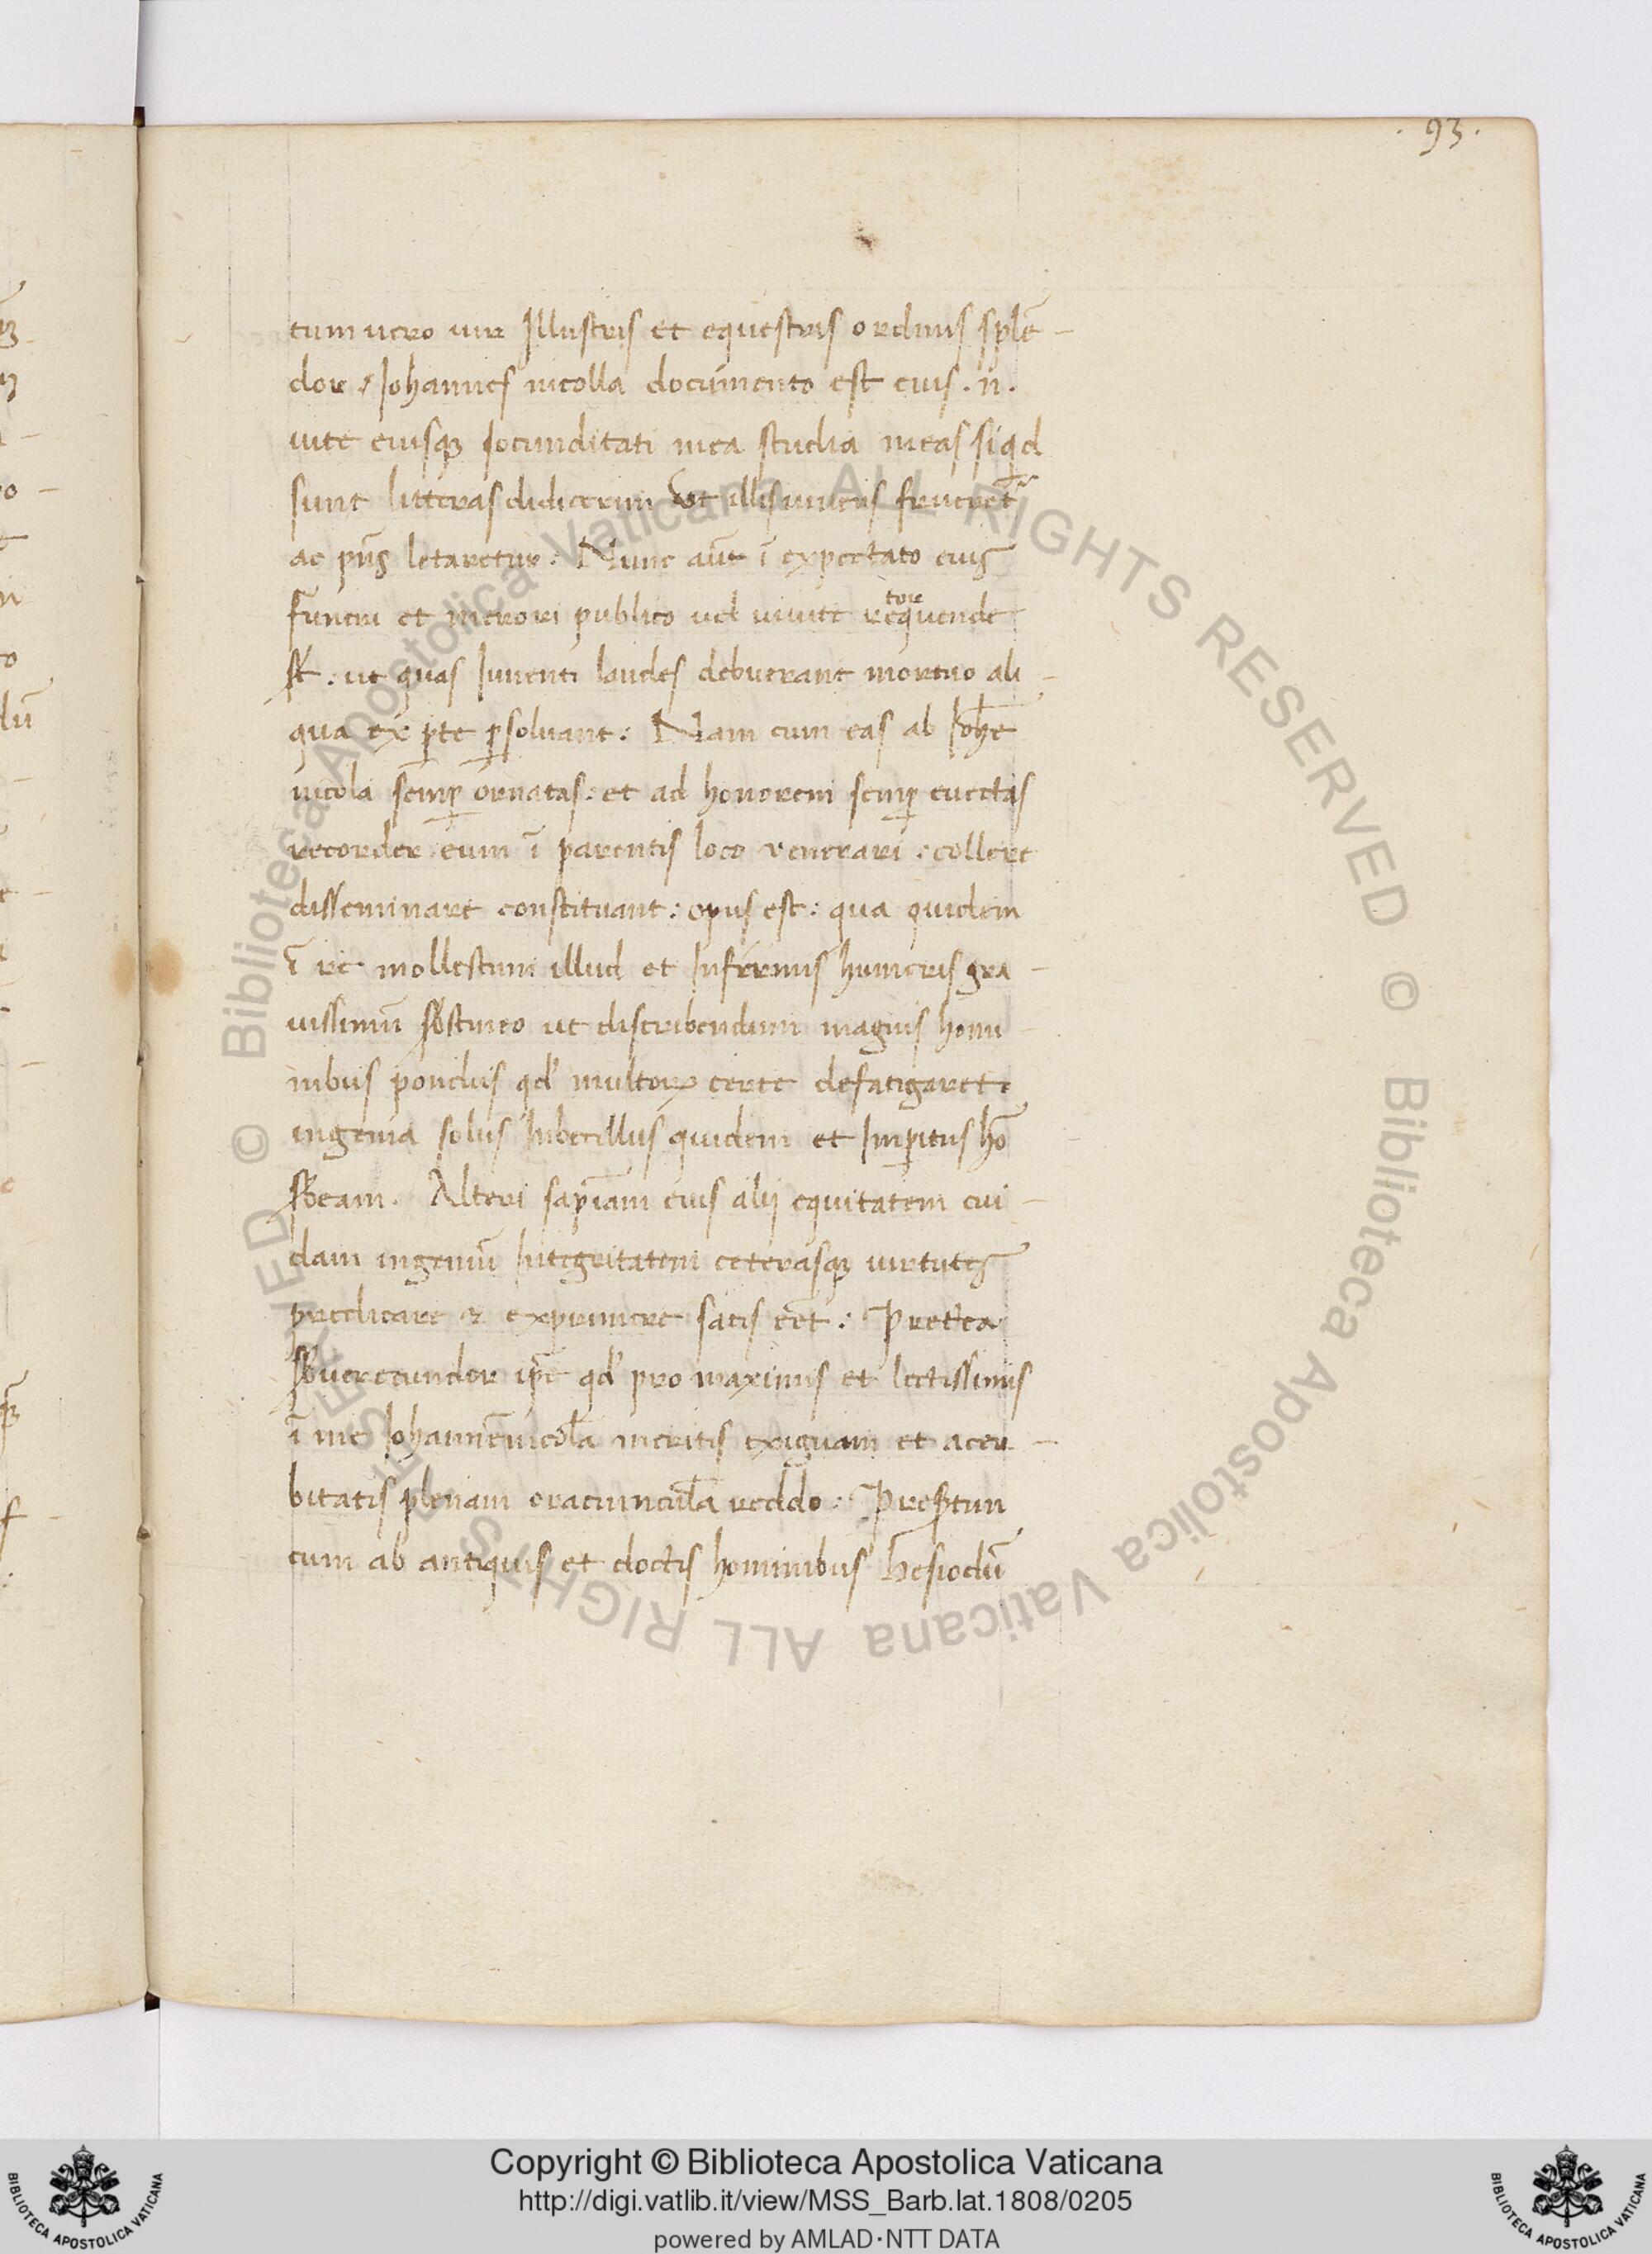 . 93 .
tum uero uir Illustris et equestris ordinis splē-
dor Iohannes nicolla documento est cuis . n .
uite eiusq; Iocunditati mea studia meas siqd
sunt litteras didicerim ut illis uiuens fruerет̃
ac pñs letaretur : Nunc aũt ī expectato eius
funeri et merori publico uel uiuite
st̃ : ut quas Iuuenti laudes debuerant mortuo ali-
qua ex p̱te p̱soluant : Nam cum eas ab Ioh̃e
nicola semp̱ ornatas : et ad honorem semp̱ euectas
recorder eum ī parentis loco venerari : collere
disseminare constituant : opus est : qua quidem
ī re mollestum illud et Infirmis humeris gra-
uissimũ sƀstineo ut discribendum magnis homi-
nibus pondus qd' multoꝝ certe defatigaret
ingenia solus Inbecillus quidem et Imp̱itus hõ
sƀeam . Alteri sapĩam eius alij equitatem cui-
dam ingeniũ Integritatem ceterasq; uirtutes
predicare & exprimere satis eēt : Preterea
sƀuerecundor ip̃e qd' pro maximis et lectissimis
ī me Iohannēnicola meritis exiguam et acer-
bitatis plenam oraciuncula reddo : Presertim
cum ab antiquis et doctis hominibus hesiodũ
© Biblioteca Apostolica Vaticana ALL RIGHTS RESERVED © Biblioteca Apostolica Vaticana ALL RIGHTS RESERVED
BIBLIOTECA APOSTOLICA VATICANA
Copyright © Biblioteca Apostolica Vaticana
http://digi.vatlib.it/view/MSS_Barb.lat.1808/0205
powered by AMLAD·NTT DATA
BIBLIOTECA APOSTOLICA VATICANA